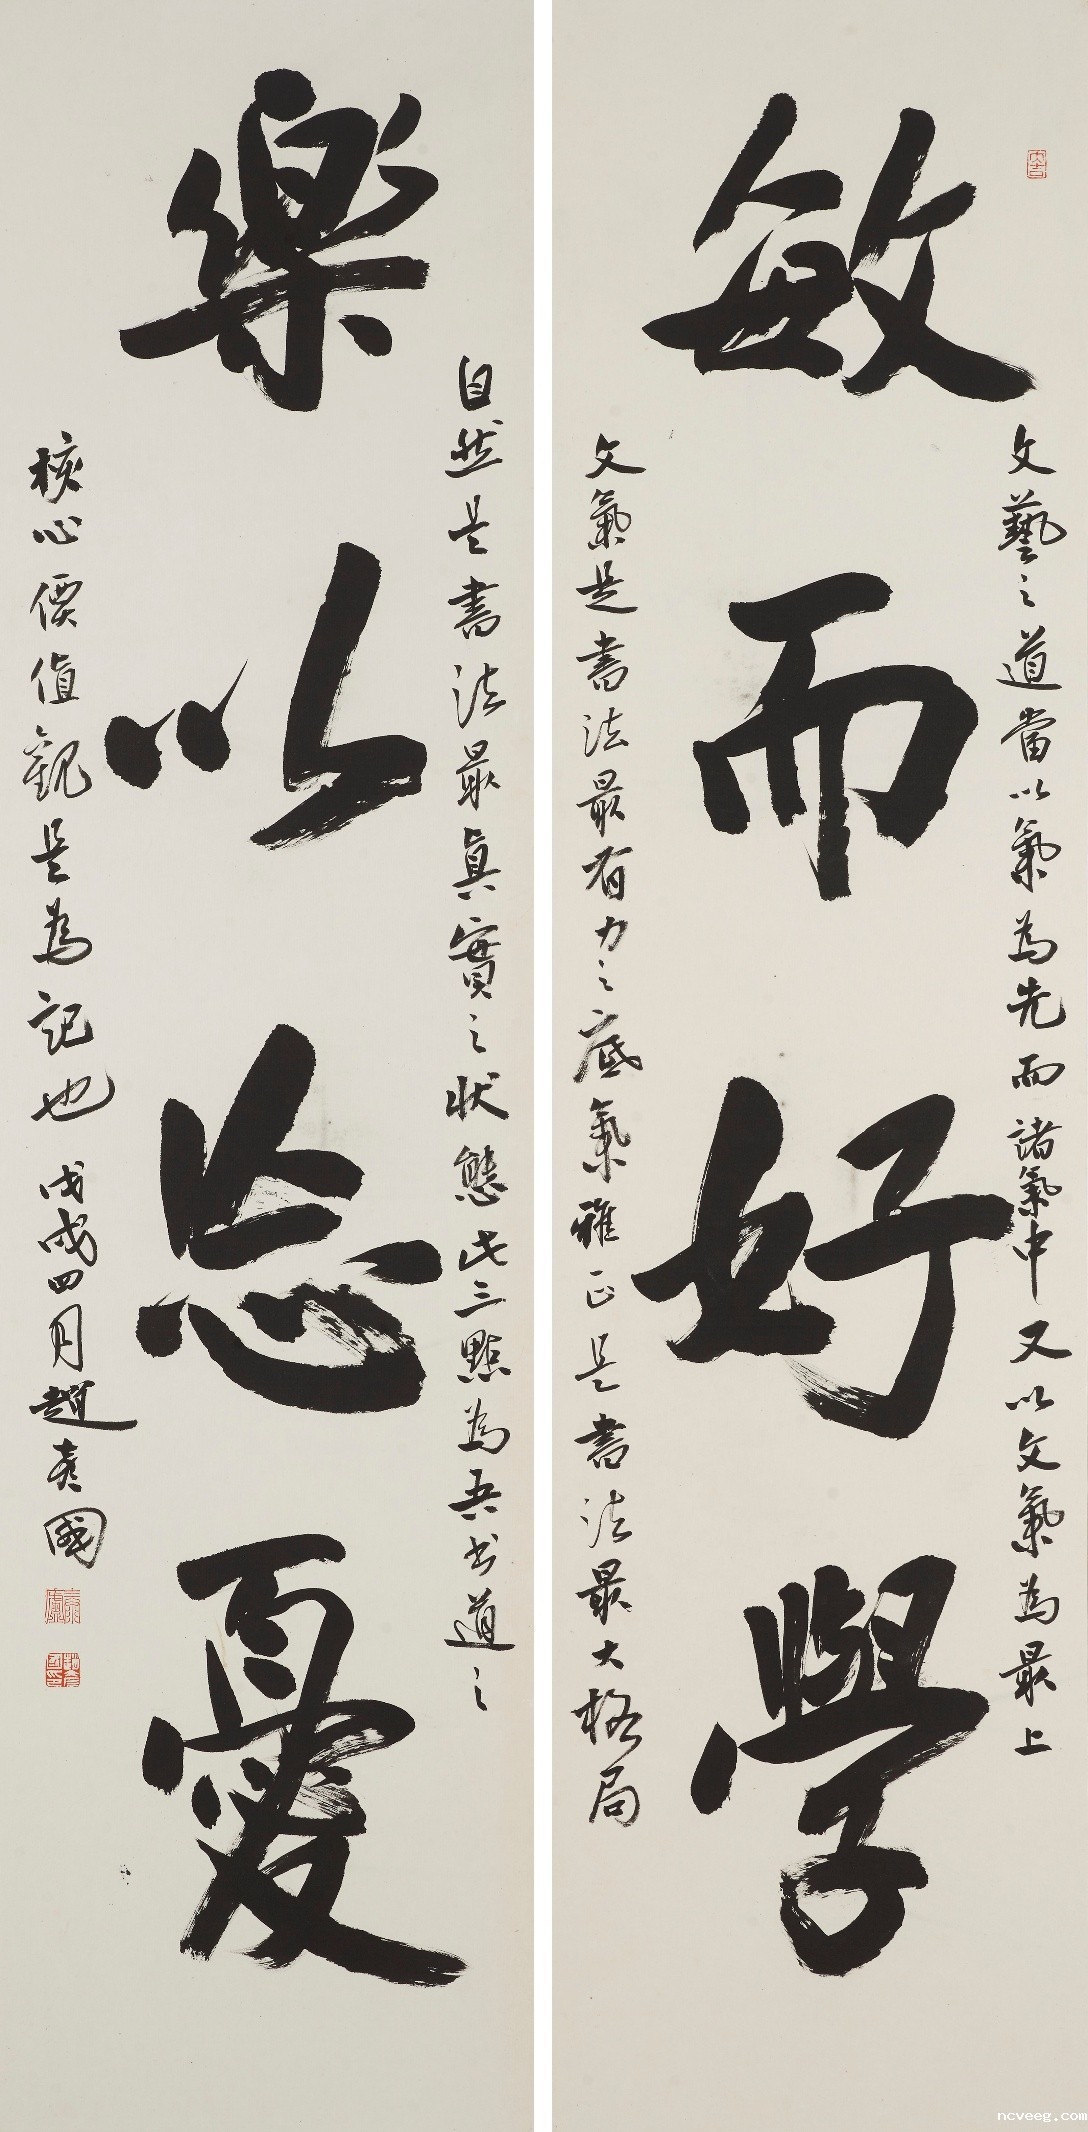 敏而好學
文藝之道當以氣為先而諸氣中又以文氣為最上
文氣是書法最有力之底氣雅正是書法最大格局
樂以忘憂
自然是書法最真實之狀態此三點為吾書道之
核心價值觀是為記也戊戌四月趙彥國
ncveeg.com